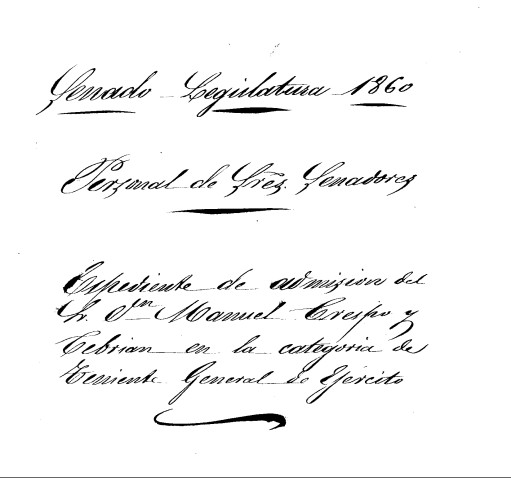 Senado - Legislatura 1860
Personal de Sres. Senadores
Espediente de admision del
Sr. Dn Manuel Crespo y
Cebrian en la categoria de
Teniente General de Ejercito